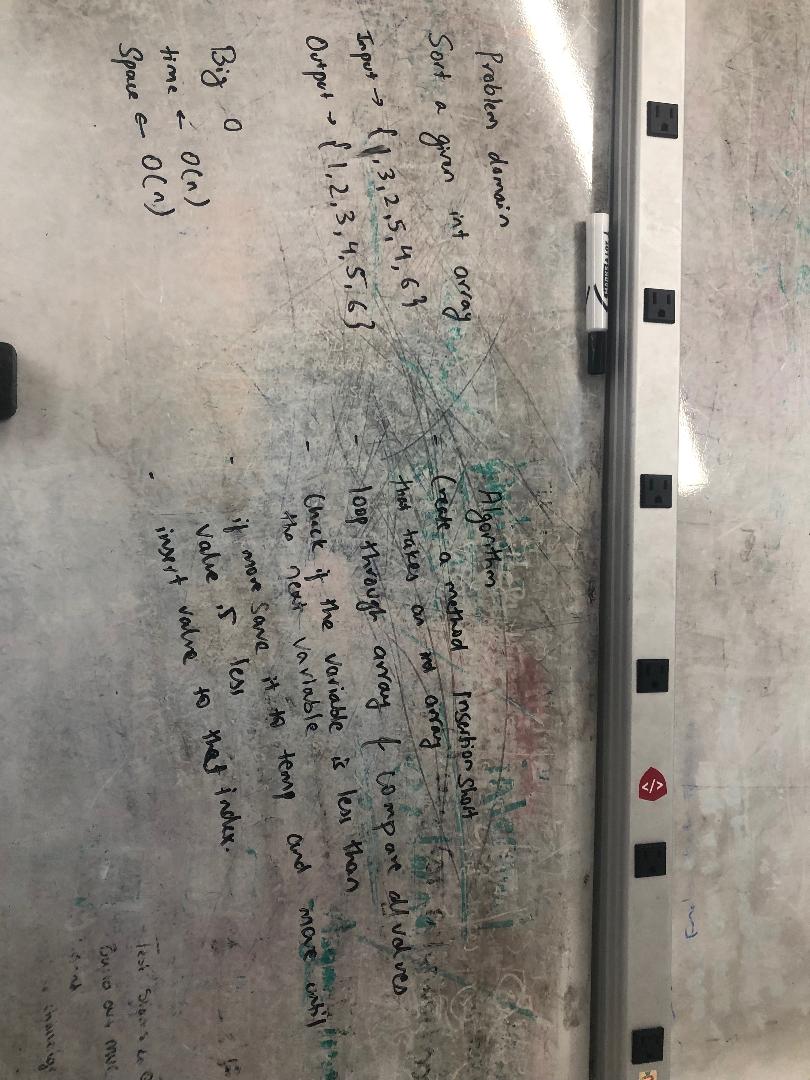 Problem domain
Sort a given int array
Input → {1,3,2,5,4,6}
Output → {1,2,3,4,5,6}
Big O
time ← O(n)
Space ← O(n)
Algorithm
- Create a method Insertion Short
that takes an int array
- loop through array & compare all values
- Check if the variable is less than
the next variable
- if more save it to temp and move until
value is less
- insert value to that index.